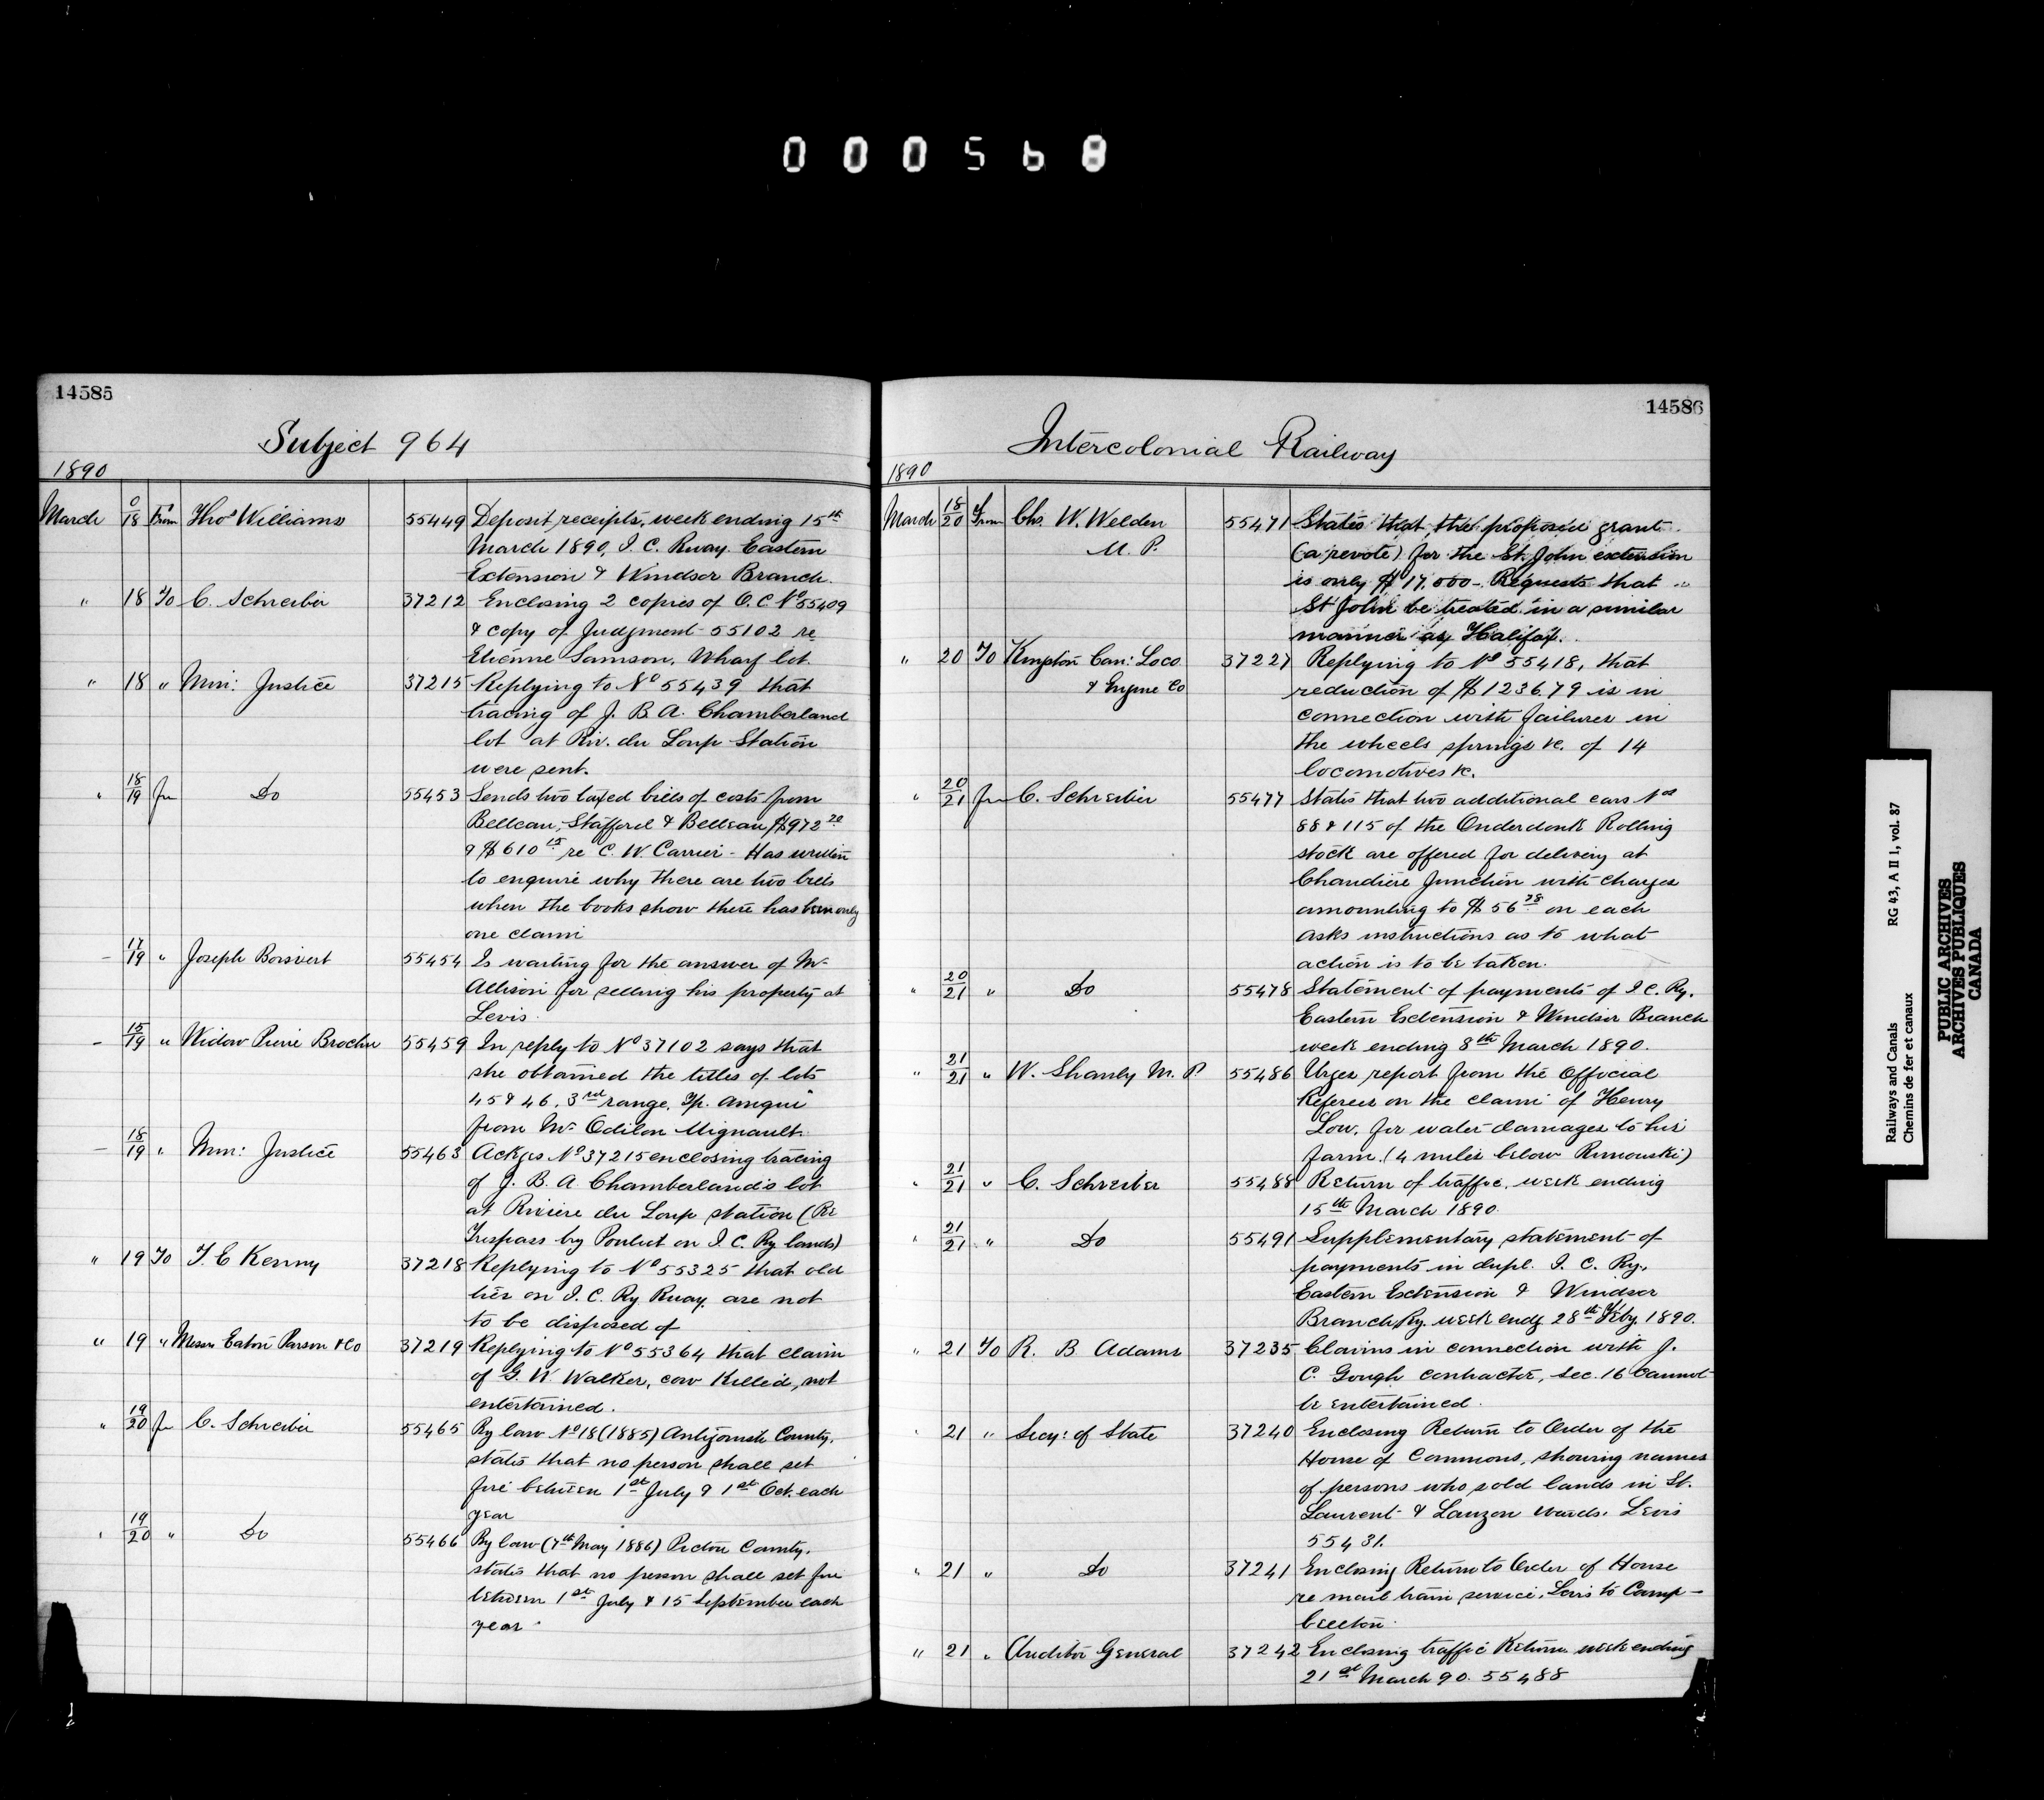 000568
14585
Subject 964
1890
March 0/18 From Thos Williams 55449 Deposit receipts, week ending 15th
March 1890, I. C. Rway. Eastern
Extension & Windsor Branch.
" 18 To C. Schreiber 37212 Enclosing 2 copies of O.C. No 55409
& copy of Judgment 55102 re
Etienne Samson, Wharf lot.
" 18 " Min: Justice 37215 Replying to No 55439 that
tracing of J. B. A. Chamberland
lot at Riv. du Loup Station
were sent.
" 18/19 Fm Do 55453 Sends two taxed bills of costs from
Belleau, Stafford & Belleau, $972 20
& $610 15 re C. W. Carrier - Has written
to enquire why there are two bills
when the books show there has been only
one claim
- 17/19 " Joseph Boisvert 55454 Is waiting for the answer of Mr
Allison for selling his property at
Levis.
- 15/19 " Widow Pierre Brochu 55459 In reply to No 37102 says that
she obtained the titles of lots
45 & 46, 3rd range, Tp. Amqui
from Mr Odilon Mignault.
- 18/19 " Min: Justice 55463 Ackges No 37215 enclosing tracing
of J. B. A. Chamberland's lot
at Riviere du Loup station (Re
Trespass by Pouliot on I. C. Ry lands)
" 19 To T. E Kenny 37218 Replying to No 55325 that old
ties on I. C. Ry Rway. are not
to be disposed of
" 19 " Messrs Eaton Parson & Co 37219 Replying to No 55364 that claim
of G. W. Walker, cow killed, not
entertained.
" 19/20 Fm C. Schreiber 55465 By law No 18 (1885) Antigonish County,
states that no person shall set
fire between 1st July & 1st Oct. each
year
" 19/20 " Do 55466 By law (7th May 1886) Pictou County,
states that no person shall set fire
between 1st July & 15 September each
year
14586
Intercolonial Railway
1890
March 18/20 From Chs. W. Weldon 55471 States that the proposed grant
M. P. (a revote) for the St. John extension
is only $17,000 - Requests that
St John be treated in a similar
manner as Halifax.
" 20 To Kingston Can: Loco 37227 Replying to No 55418, that
& Engine Co reduction of $1236.79 is in
connection with failures in
the wheels springs &c. of 14
locomotives &c.
" 20/21 Fm C. Schreiber 55477 States that two additional cars Nos
88 & 115 of the Onderdonk Rolling
stock are offered for delivery at
Chaudiere Junction with charges
amounting to $56 78 on each
asks instructions as to what
action is to be taken.
" 20/21 " Do 55478 Statement of payments of I C. Ry.
Eastern Extension & Windsor Branch
week ending 8th March 1890.
" 21/21 " W. Shanly M. P. 55486 Urges report from the Official
Referees on the claim of Henry
Low, for water damages to his
farm. (4 miles below Rimouski)
" 21/21 " C. Schreiber 55488 Return of traffic, week ending
15th March 1890.
" 21/21 " Do 55491 Supplementary statement of
payments in dupl. I. C. Ry.,
Eastern Extension & Windsor
Branch Ry. week endg 28th Feby. 1890.
" 21 To R. B Adams 37235 Claims in connection with J.
C. Gough contractor, Sec. 16 cannot
be entertained.
" 21 " Secy: of State 37240 Enclosing Return to Order of the
House of Commons, showing names
of persons who sold lands in St.
Laurent & Lauzon wards. Levis
55431.
" 21 " Do 37241 Enclosing Return to Order of House
re mail train service, Levis to Camp-
bellton.
" 21 " Auditor General 37242 Enclosing traffic Return week ending
21st March 90. 55488
Railways and Canals RG 43, A II 1, vol. 87
Chemins de fer et canaux
PUBLIC ARCHIVES
ARCHIVES PUBLIQUES
CANADA